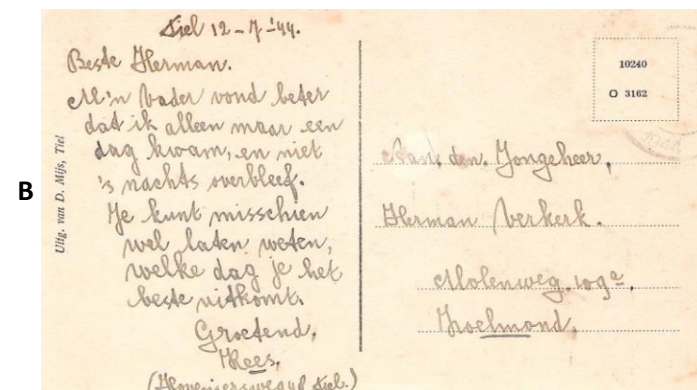 B
Tiel 12-7-'44.
Beste Herman.
M'n Vader vond beter
dat ik alleen maar een
dag kwam, en niet
's nachts overbleef.
Je kunt misschien
wel laten weten,
welke dag je het
beste uitkomt.
Groetend,
Kees.
Tiel.)
Uitg. van D. Mijs, Tiel
10240
O 3162
Aan den Jongeheer,
Herman Verkerk.
Molenweg
Zoelmond.